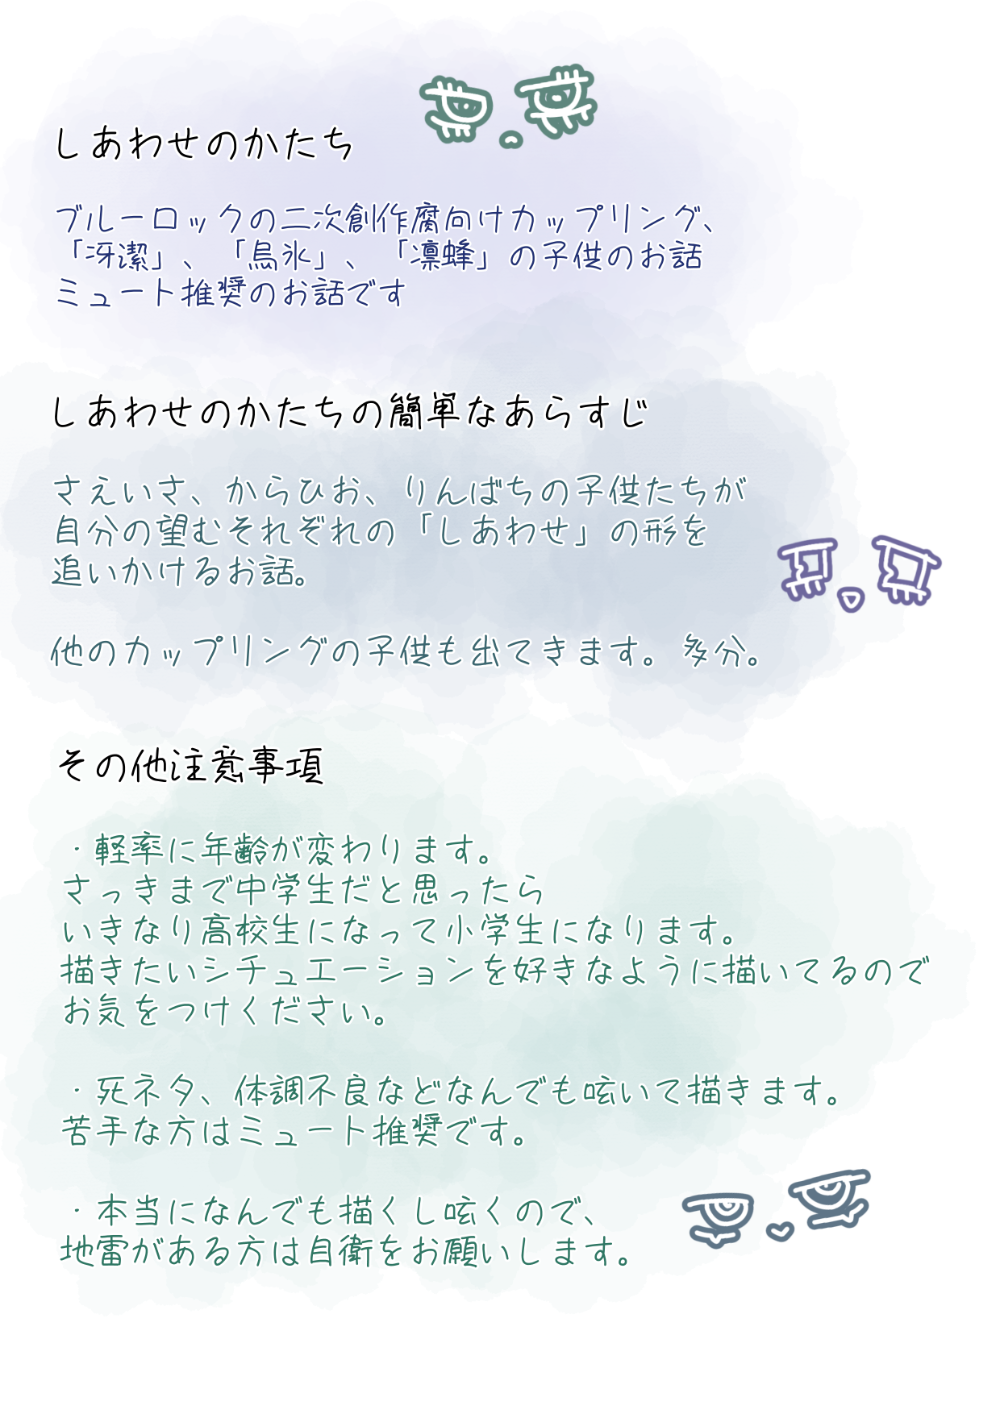 しあわせのかたち
ブルーロックの二次創作腐向けカップリング、
「冴潔」、「烏氷」、「凛蜂」の子供のお話
ミュート推奨のお話です
しあわせのかたちの簡単なあらすじ
さえいさ、からひお、りんばちの子供たちが
自分の望むそれぞれの「しあわせ」の形を
追いかけるお話。
他のカップリングの子供も出てきます。多分。
その他注意事項
・軽率に年齢が変わります。
さっきまで中学生だと思ったら
いきなり高校生になって小学生になります。
描きたいシチュエーションを好きなように描いてるので
お気をつけください。
・死ネタ、体調不良などなんでも呟いて描きます。
苦手な方はミュート推奨です。
・本当になんでも描くし呟くので、
地雷がある方は自衛をお願いします。